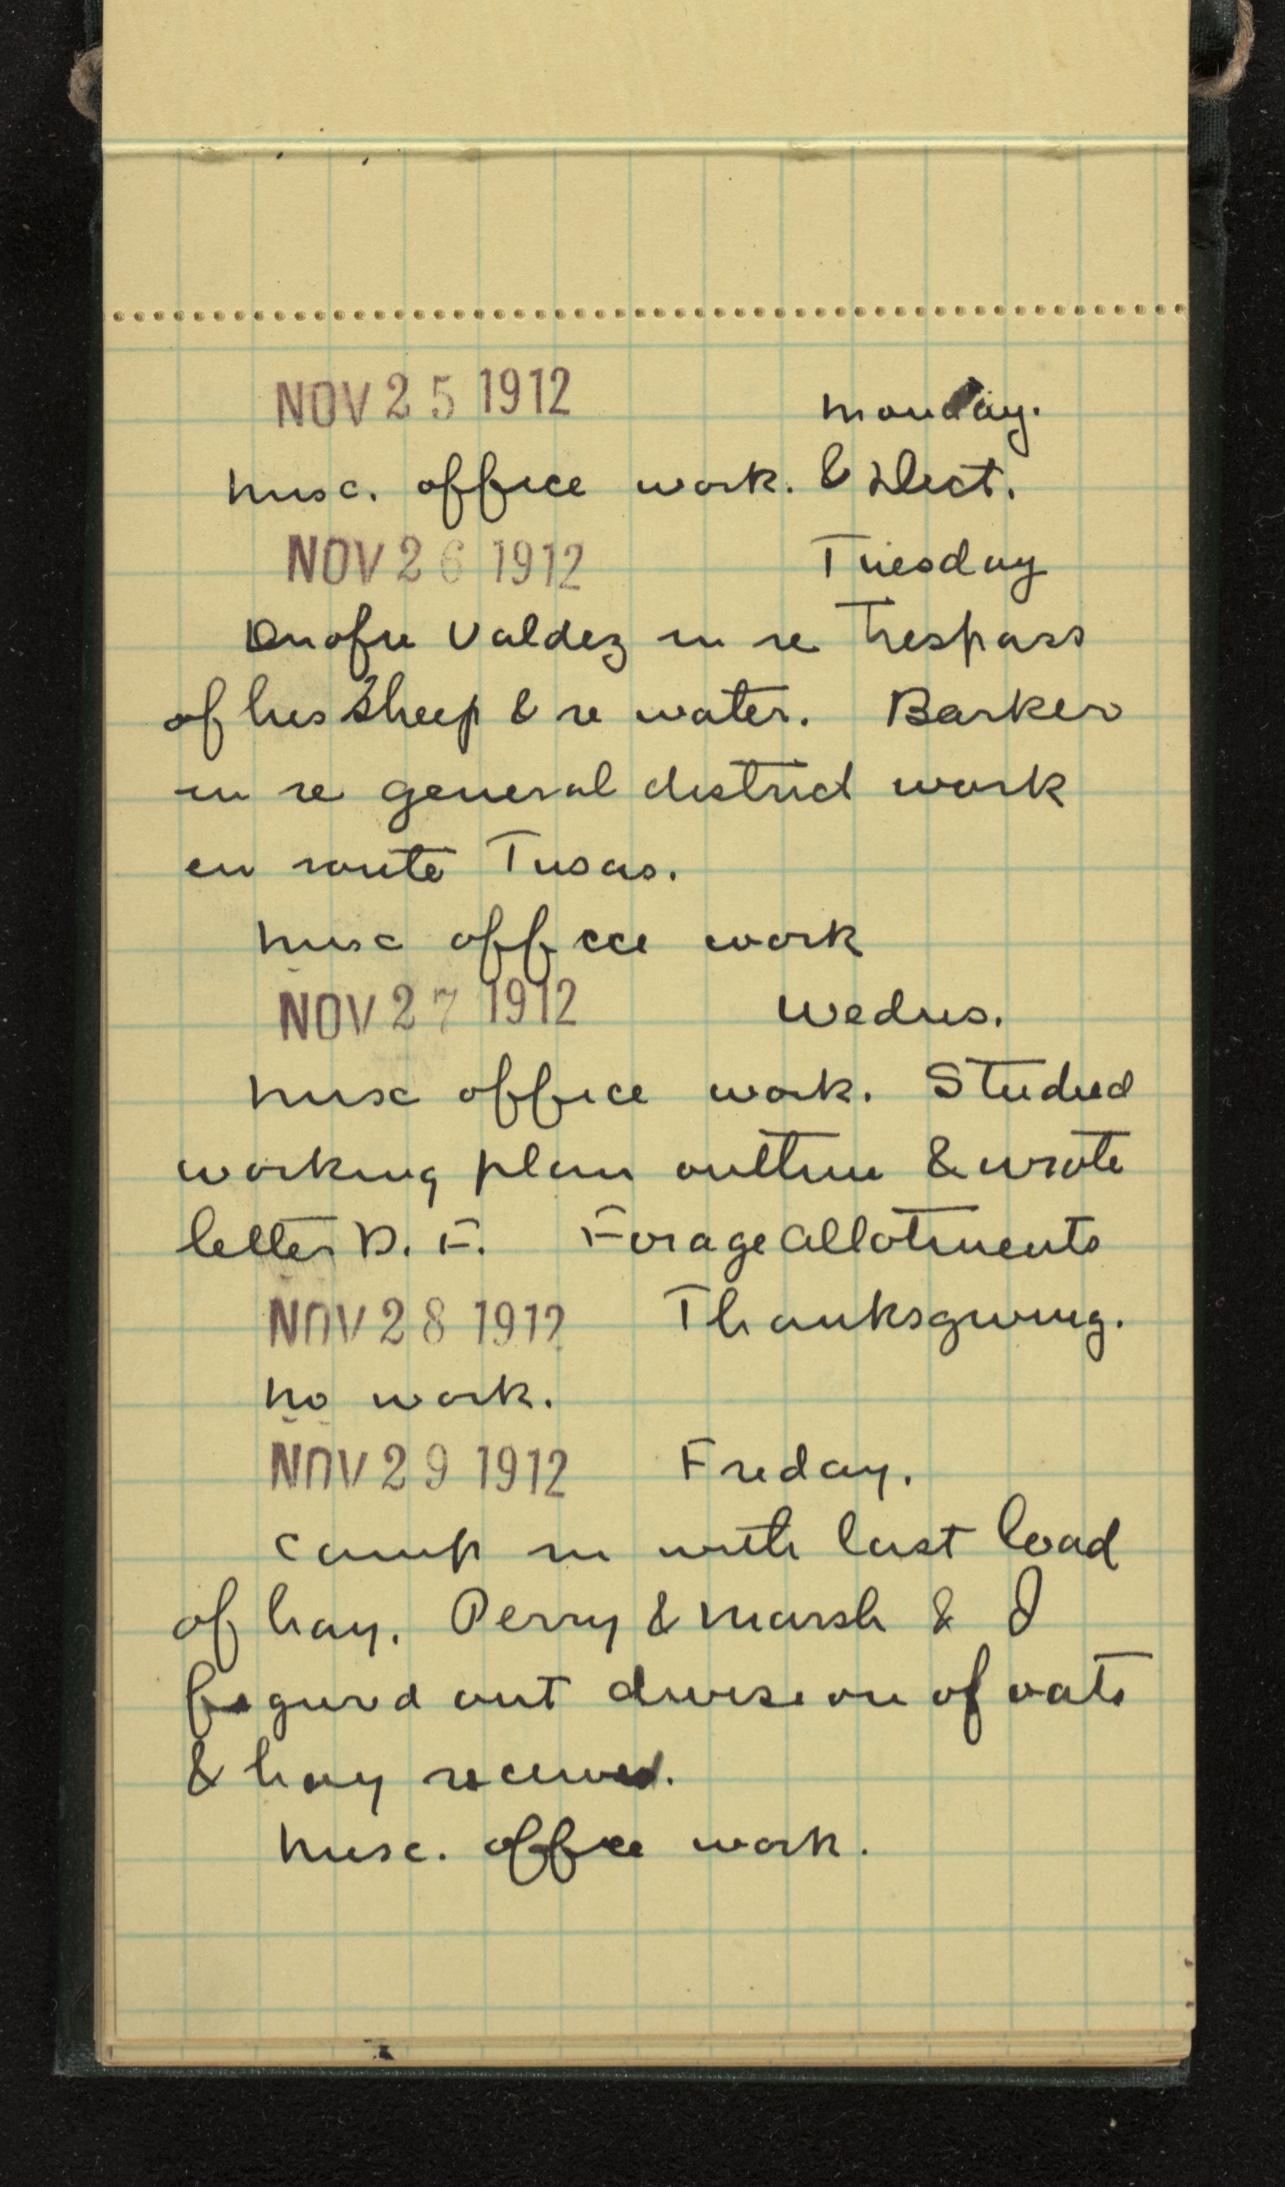 NOV 25 1912 Monday.
Misc. office work. & Dict.
NOV 26 1912 Tuesday
Onofre Valdez in re Trespass
of his Sheep & re water. Barker
in re general district work
en route Tusas.
Misc office work
NOV 27 1912 Wednes.
Misc office work. Studied
working plan outline & wrote
letter D. F. Forage allotments
NOV 28 1912 Thanksgiving.
No work.
NOV 29 1912 Friday.
Camp in with last load
of hay. Perry & Marsh & I
figured out division of oats
& hay received.
Misc. office work.